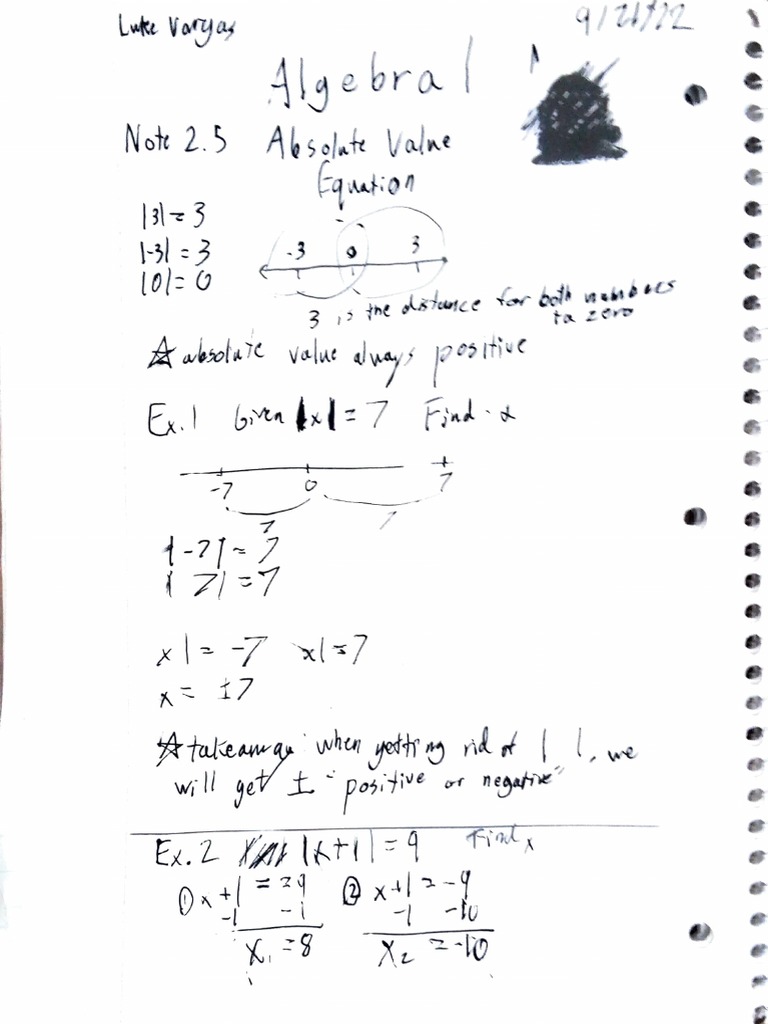 Luke Vargas
9/21/22
Algebra 1
Note 2.5 Absolute Value
Equation
|3| = 3
|-3| = 3
|0| = 0
-3 0 3
3 is the distance for both numbers
to zero
☆ absolute value always positive
Ex. 1 Given |x| = 7 Find x
-7 0 7
7 7
|-7| = 7
|7| = 7
x1 = -7 x1 = 7
x = ±7
☆ takeaway: when getting rid of | |, we
will get ± "positive or negative"
Ex. 2 |x+1| = 9 Find x
① x+1 = 9 ② x+1 = -9
-1 -1 -1 -10
x₁ = 8 x₂ = -10